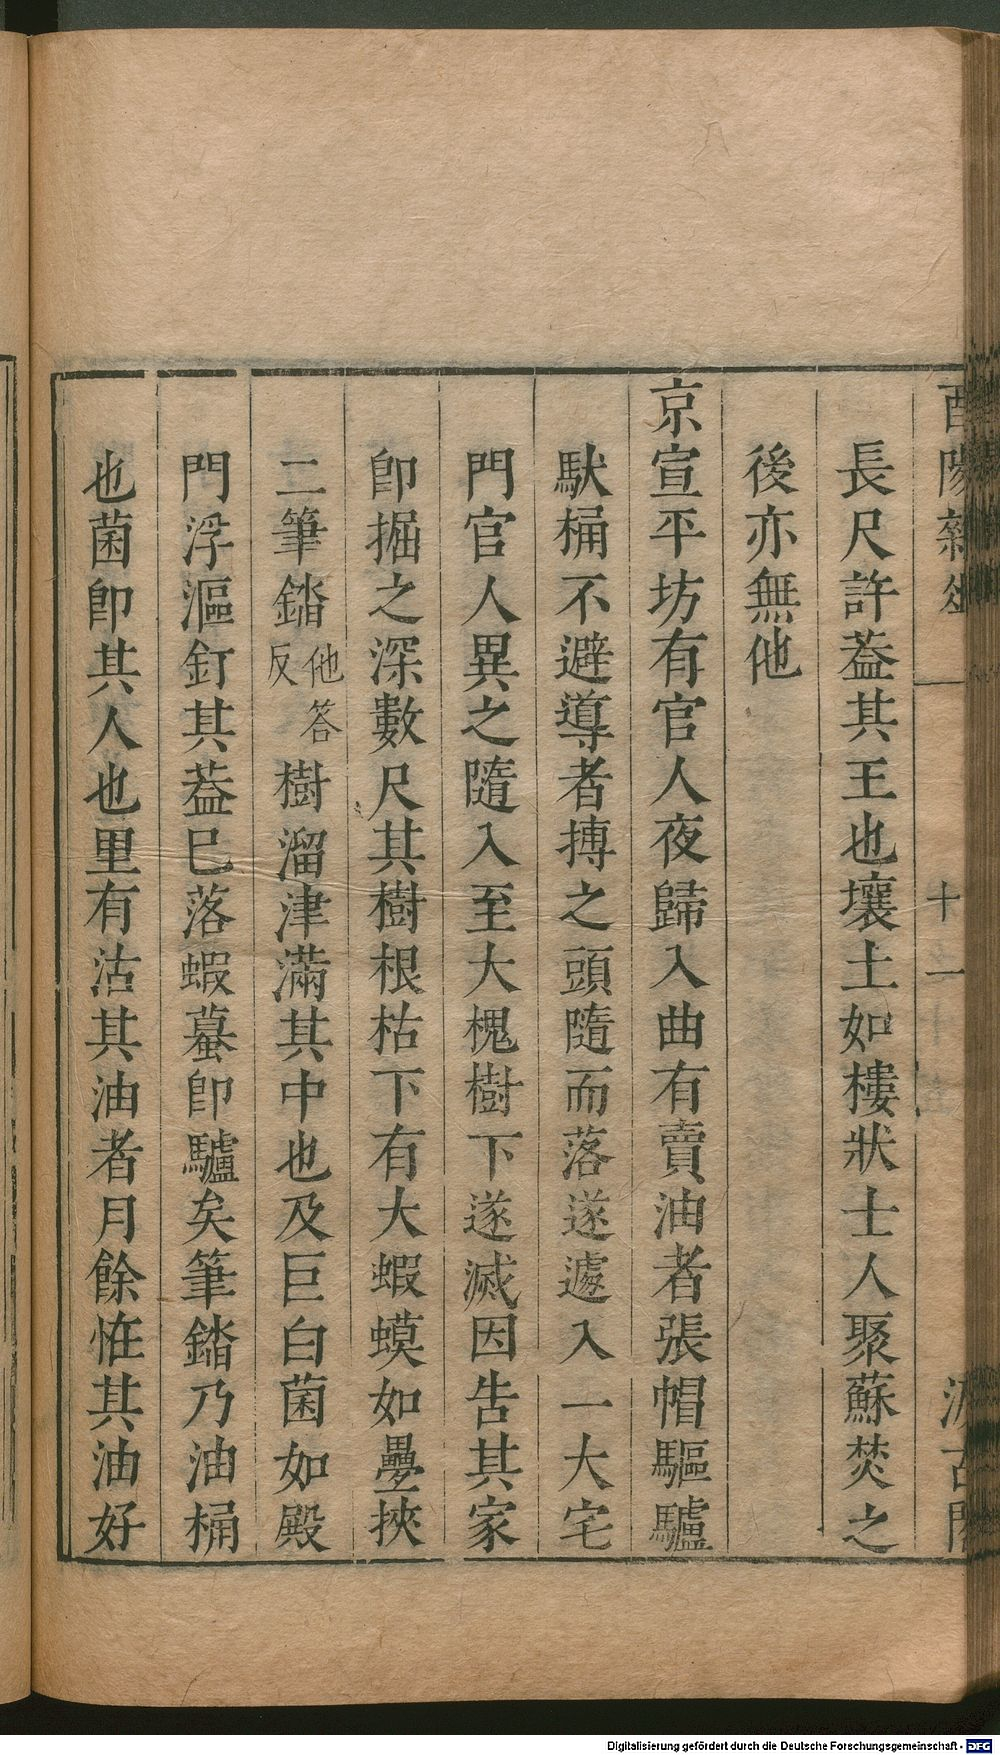 酉陽雜俎
十一
汲古閣
長尺許葢其王也壤土如樓狀士人聚蘇焚之
後亦無他
京宣平坊有官人夜歸入曲有賣油者張帽驅驢
馱桶不避導者搏之頭隨而落遂遽入一大宅
門官人異之隨入至大槐樹下遂滅因告其家
卽掘之深數尺其樹根枯下有大蝦蟆如疊挾
二筆錔他答反樹溜津滿其中也及巨白菌如殿
門浮漚釘其葢已落蝦蟇卽驢矣筆錔乃油桶
也菌卽其人也里有沽其油者月餘恠其油好
Digitalisierung gefördert durch die Deutsche Forschungsgemeinschaft - DFG